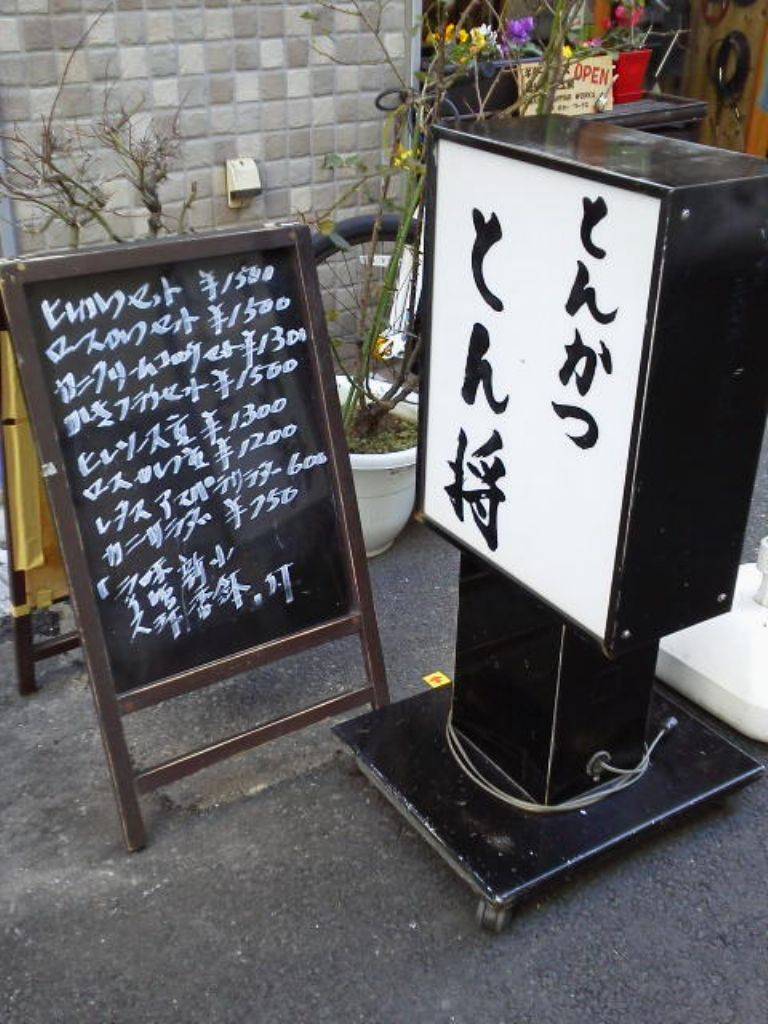 ヒレカツセット ¥1500
ロースカツセット ¥1500
カニクリームコロッケセット ¥1300
かきフライセット ¥1500
ヒレソース重 ¥1300
ロースカツ重 ¥1200
レタスアスパラサラダー 600
カニサラダ ¥750
ライス 味噌汁 新香 小鉢 付
とんかつ
とん将
OPEN